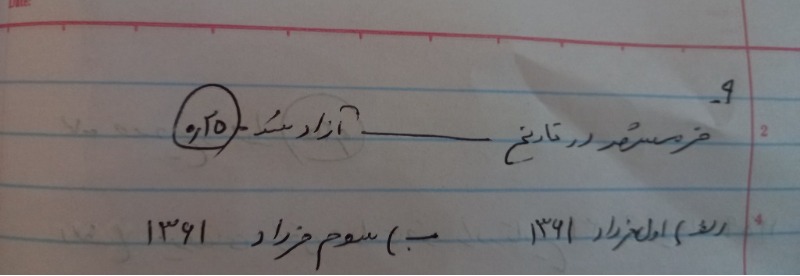 ۹-
خرمشهر در تاریخ ــــــــــ آزاد شد. ۰٫۲۵
الف) اول خرداد ۱۳۶۱ ب) سوم خرداد ۱۳۶۱